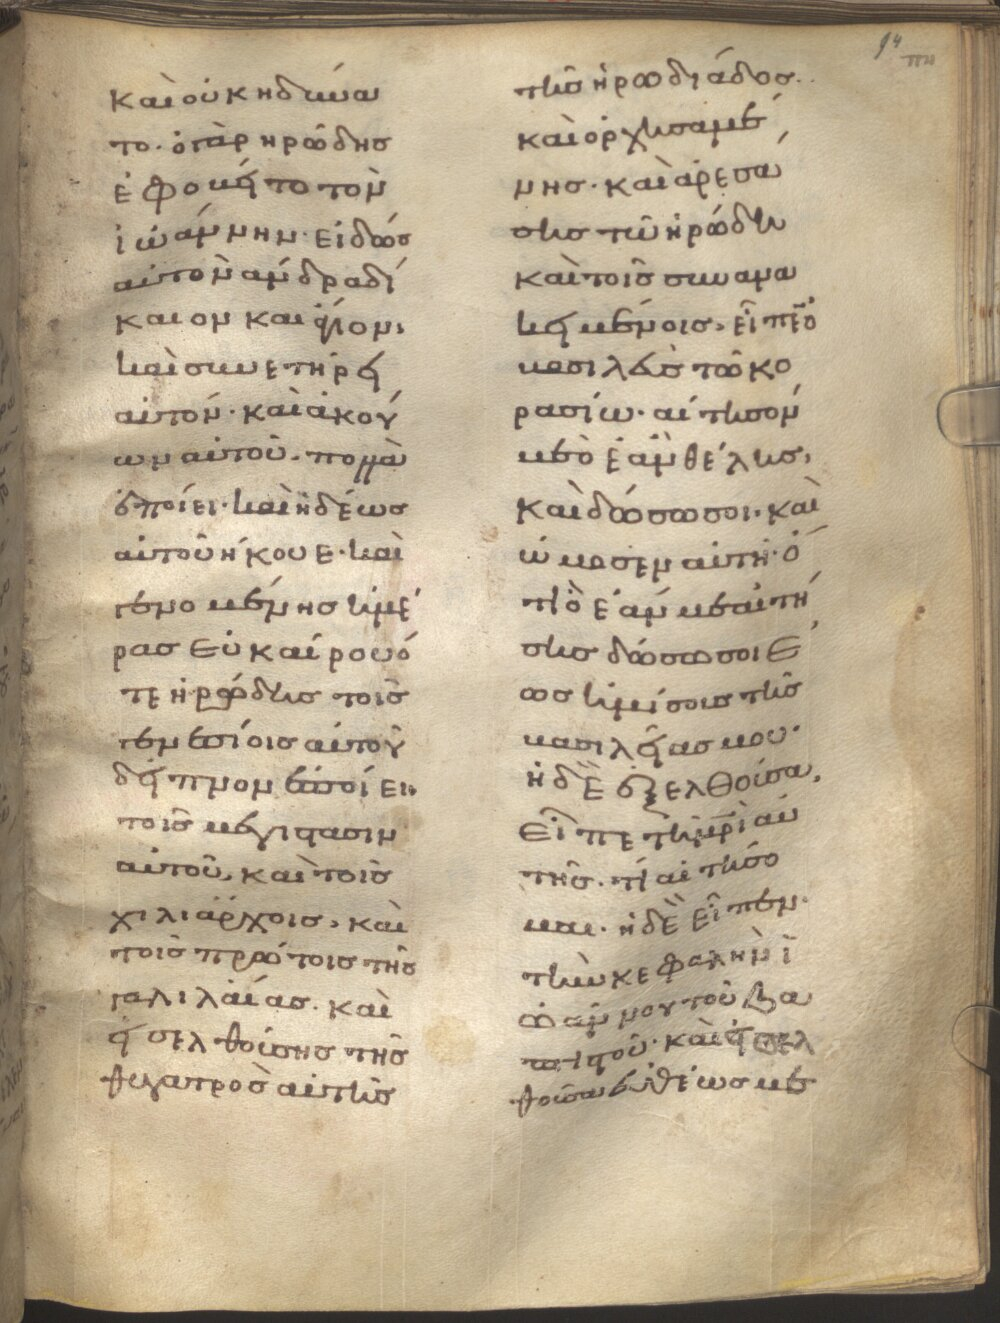 94
καὶ οὐκ ηδύνα
το· ὁ γὰρ ἡρώδης
ἐφοβεῖτο τὸν
ἰωάννην· εἰδὼς
αὐτὸν ἄνδρα δί
καιον καὶ ἅγιον,
καὶ συνετήρει
αὐτόν· καὶ ἀκού
ων αὐτοῦ. πολλὰ
ἐποίει· καὶ ἡδέως
αὐτοῦ ἤκουε· καὶ
γενομένης ἡμέ
ρας εὐκαίρου ὅ
τε ἡρώδης τοῖς
γενεσίοις αὐτοῦ
δεῖπνον ἐποίει,
τοῖς μεγιστᾶσιν
αὐτοῦ, καὶ τοῖς
χιλιάρχοις, καὶ
τοῖς πρώτοις τῆς
γαλιλαίας. καὶ
εἰσελθούσης τῆς
θυγατρὸς αὐτῆς
τῆς ἡρωδιάδος.
καὶ ὀρχησαμέ
νης· καὶ ἀρεσά
σης τῶ ἡρώδη
καὶ τοῖς συνανα
κειμένοις, εἶπεν ὁ
βασιλεὺς τῶ κο
ρασίω· αἴτησόν
με ὃ ἐὰν θέλης,
καὶ δώσω σοι· καὶ
ὤμοσεν αὐτῆ· ὅ
τι ὃ ἐάν με αἰτή
σης δώσω σοι ἕ
ως ἡμίσους τῆς
βασιλείας μου·
ἡ δὲ ἐξελθοῦσα,
εἶπε τῆ μρὶ αὐ
τῆς. τί αἰτήσο
μαι· ἡ δὲ εἶπεν·
τὴν κεφαλὴν ἰ
ωάννου τοῦ βα
πτιστοῦ· καὶ εἰσελ
θοῦσα εὐθέως με